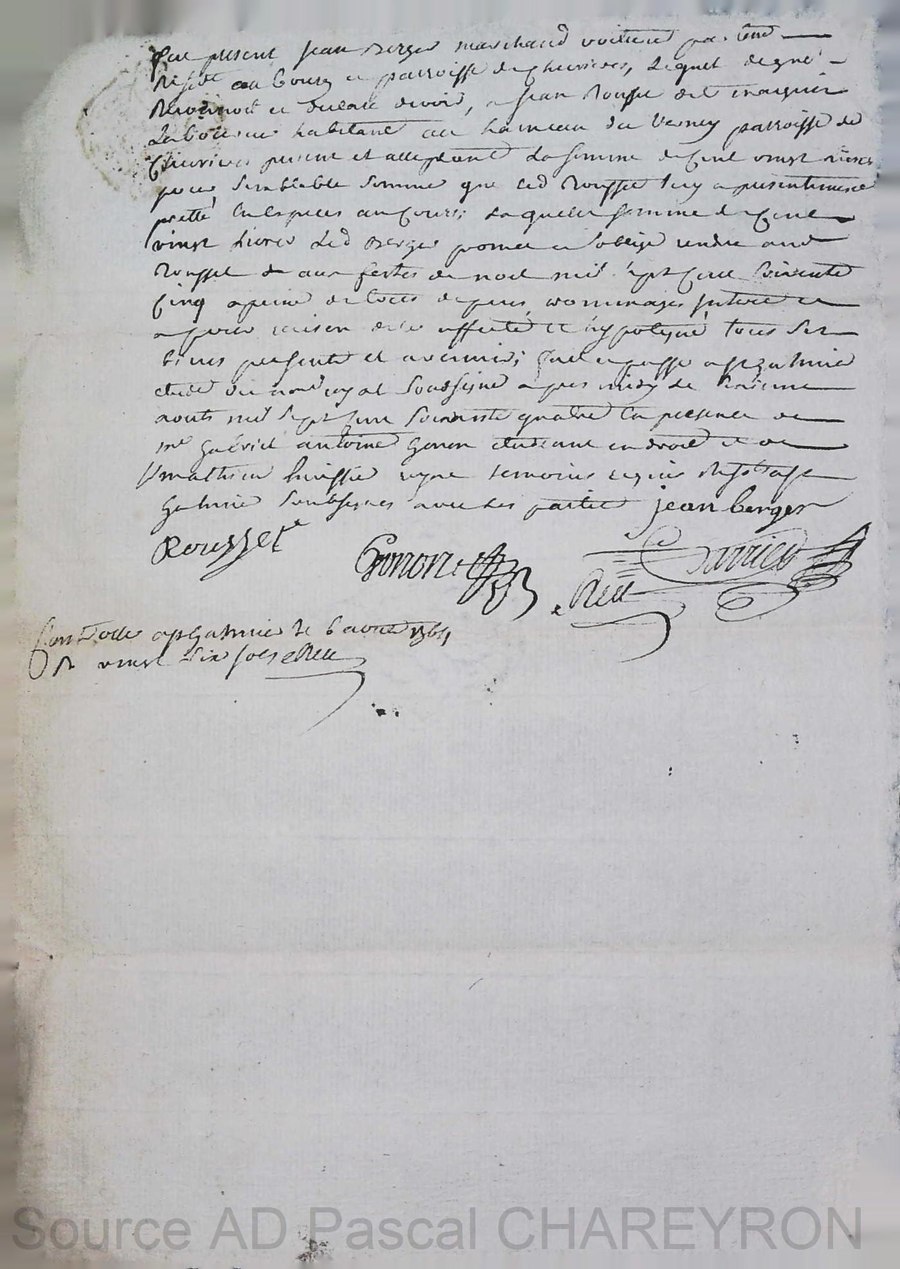 Fut present Jean Berger marchand voiturier par terre
resid.t au bourg et parroisse de Chevrieres, lequel de gré
reconnoit et declare devoir, a Jean Rousset dit
laboureur habitant au hameau du Verney parroisse de
Chevrieres present et acceptant la somme de cent vingt livres
pour semblable somme que led Rousset luy a presentement
pretté en especes au cours, laquelle somme de cent
vingt livres led Berger promet et s'oblige rendre aud
Rousset aux festes de noel mil sept cent soixante
cinq a peine de tous depens, dommages interets et
a pour raison de ce affecté et hypotequé tous ses
biens presents et avenirs; fait et passé a st galmier
etude du no.re royal soussigné apres midy le
aoust mil sept cent soixante quatre en presence de
m.e antoine Gonon etudiant en droit et de
mathieu temoins requis
galmier soussignés avec les parties jean berger
Rousset
Gonon
Rey
Controllé a st Galmier le 6 aout 1764
R vingt six sols Rey
Source AD Pascal CHAREYRON